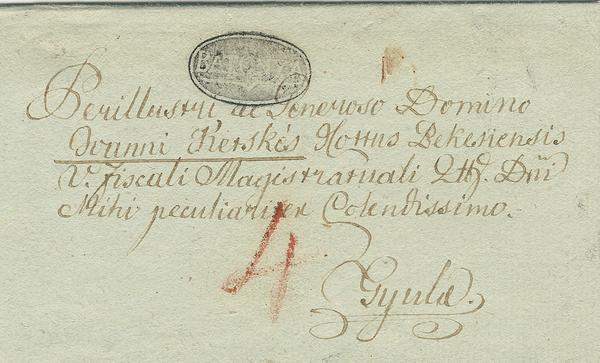 Perillustri ac Generoso Domino
Joanni Ketskés Cottus Bekesiensis
V. Fiscali Magistratuali Dni
Mihi peculiariter Colendissimo.
4
Gyulæ.